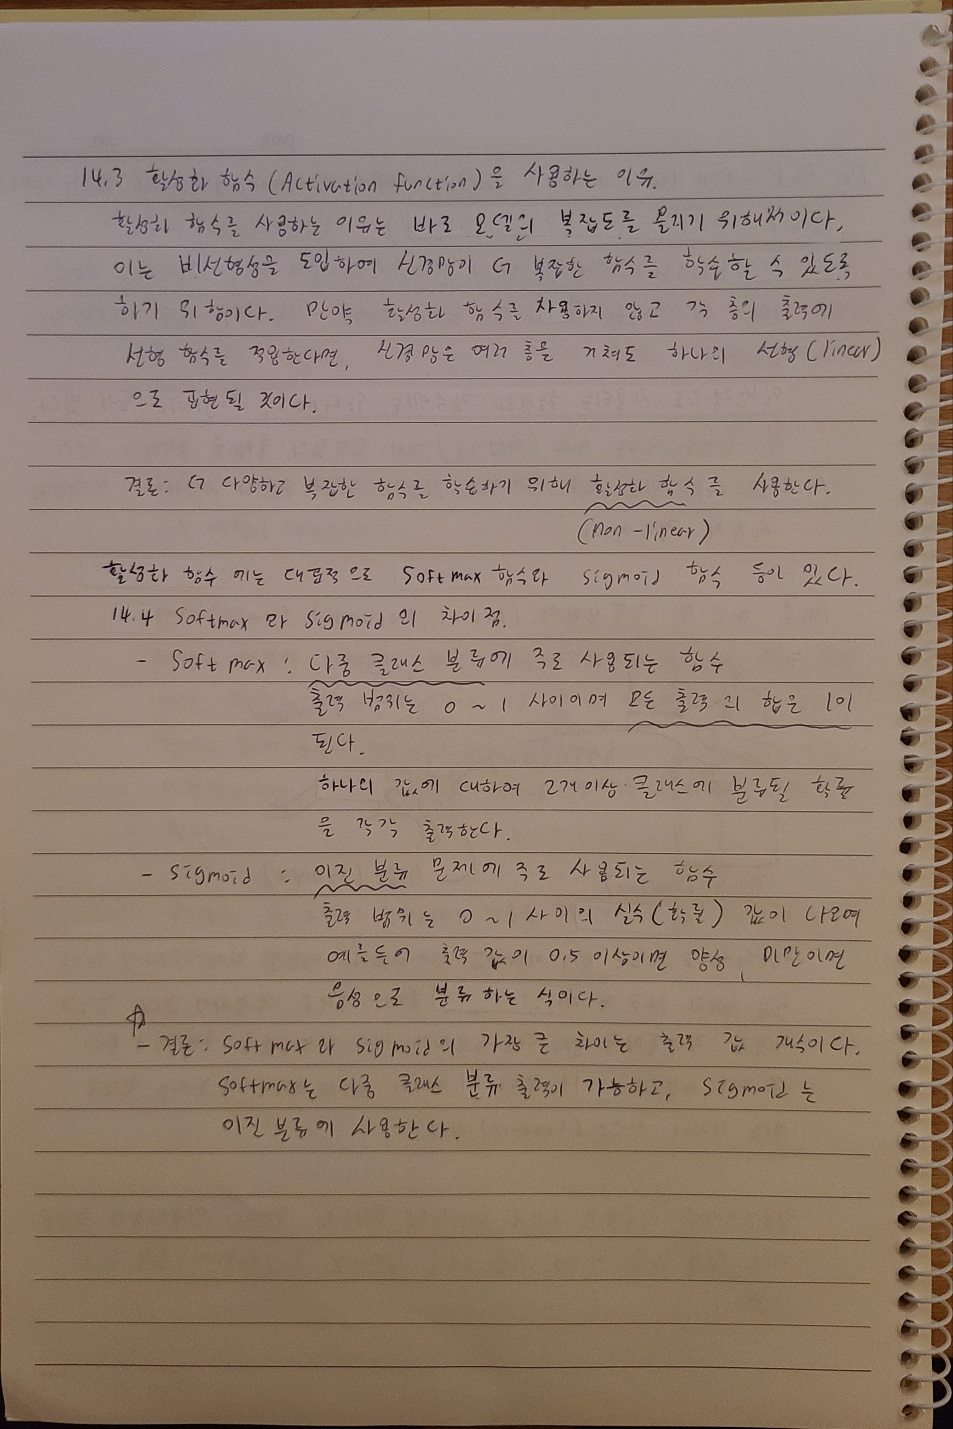 14.3 활성화 함수(Activation function)을 사용하는 이유.
활성화 함수를 사용하는 이유는 바로 모델의 복잡도를 올리기 위해서이다,
이는 비선형성을 도입하여 신경망이 더 복잡한 함수를 학습할 수 있도록
하기 위함이다. 만약 활성화 함수를 사용하지 않고 각 층의 출력에
선형 함수를 적용한다면, 신경망은 여러 층을 거쳐도 하나의 선형(linear)
으로 표현될 것이다.
결론: 더 다양하고 복잡한 함수를 학습하기 위해 활성화 함수를 사용한다.
(non-linear)
활성화 함수에는 대표적으로 Softmax 함수와 sigmoid 함수 등이 있다.
14.4 softmax 와 sigmoid 의 차이점.
- softmax : 다중 클래스 분류에 주로 사용되는 함수
출력 범위는 0 ~ 1 사이이며 모든 출력의 합은 1이
된다.
하나의 값에 대하여 2개이상 클래스에 분류될 확률
을 각각 출력한다.
- sigmoid : 이진 분류 문제에 주로 사용되는 함수
출력 범위는 0 ~ 1 사이의 실수(확률) 값이 나오며
예를들어 출력 값이 0.5 이상이면 양성, 미만이면
음성으로 분류하는 식이다.
- 결론: softmax 와 sigmoid의 가장 큰 차이는 출력 값 개수이다.
softmax는 다중 클래스 분류 출력이 가능하고, sigmoid 는
이진 분류에 사용한다.